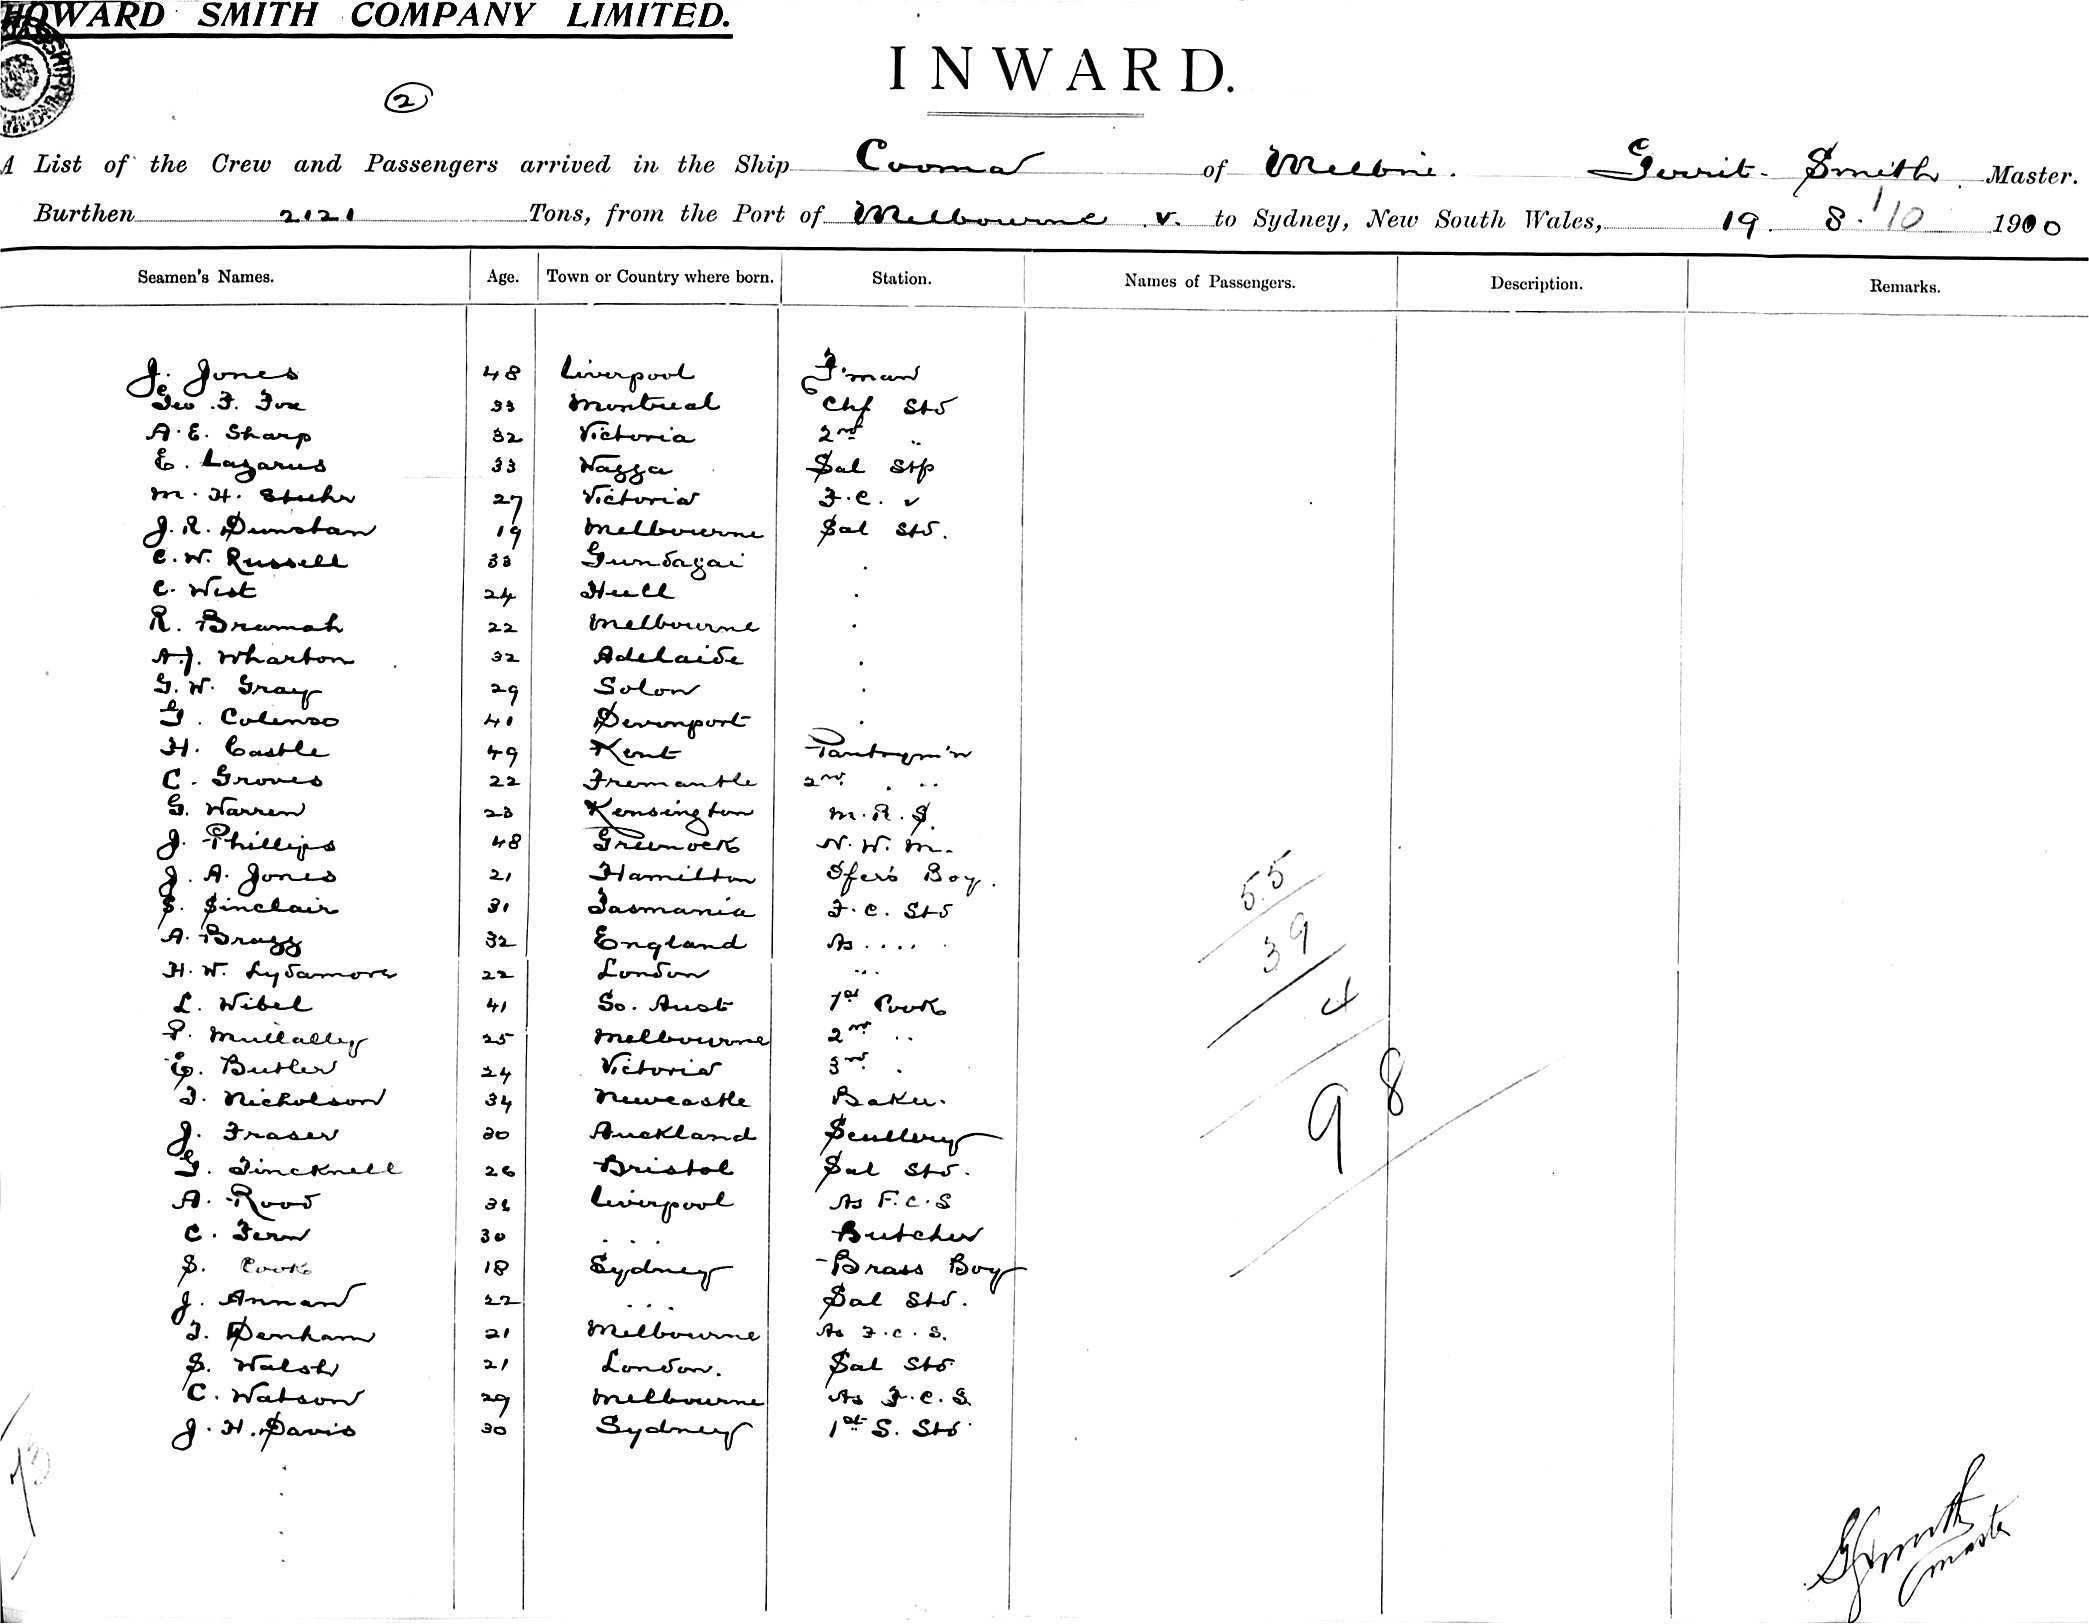 HOWARD SMITH COMPANY LIMITED.
INWARD.
2
A List of the Crew and Passengers arrived in the Ship Cooma of Melbne. Gerrit Smith Master.
Burthen 2121 Tons, from the Port of Melbourne v. to Sydney, New South Wales, 19. 8. '10 1900
Seamen's Names. Age. Town or Country where born. Station. Names of Passengers. Description. Remarks.
J. Jones 48 Liverpool F'man
Geo. F. Fox 33 Montreal Chf Std
A. E. Sharp 32 Victoria 2nd ..
E. Lazarus 33 Wagga Sal Std
M. H. Stuhr 27 Victoria F.C. v
J. R. Dunstan 19 Melbourne Sal Std.
C. W. Russell 33 Gundagai .
C. West 24 Hull .
R. Bramah 22 Melbourne .
A. J. Wharton 32 Adelaide .
G. W. Gray 29 Solon .
G. Colenso 41 Devonport .
H. Castle 49 Kent Pantrym'n
C. Groves 22 Fremantle 2nd . ..
G. Warren 23 Kensington M.R.S.
J. Phillips 48 Greenock N.W.M.
J. A. Jones 21 Hamilton Boy.
S. Sinclair 31 Tasmania F.C. Std
A. Bragg 32 England As ....
H. W. Lydamore 22 London ...
L. Wibel 41 So. Aust 1st Cook
P. Mullalley 25 Melbourne 2nd ..
E. Butler 24 Victoria 3rd .
T. Nicholson 34 Newcastle Baker.
J. Fraser 30 Auckland Scullery
G. Tincknell 26 Bristol Sal Std.
A. Rood Liverpool As F.C.S
C. Fern 30 . . . Butcher
S. Cook 18 Sydney Brass Boy
J. Annan 22 . . . Sal Std.
T. Denham 21 Melbourne As F.C.S.
S. Walsh 21 London. Sal Std
C. Watson 29 Melbourne As F.C.S.
J. H. Davis 30 Sydney 1st S. Std
55
39
4
98
G Smith
master